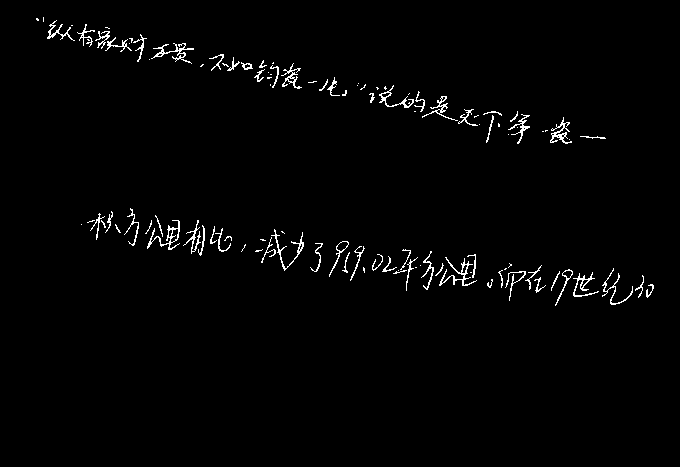 “纵有家财万贯，不如钧瓷一片。”说的是天下第一瓷一
积方公里相比，减少了959.02平方公里。而在19世纪30